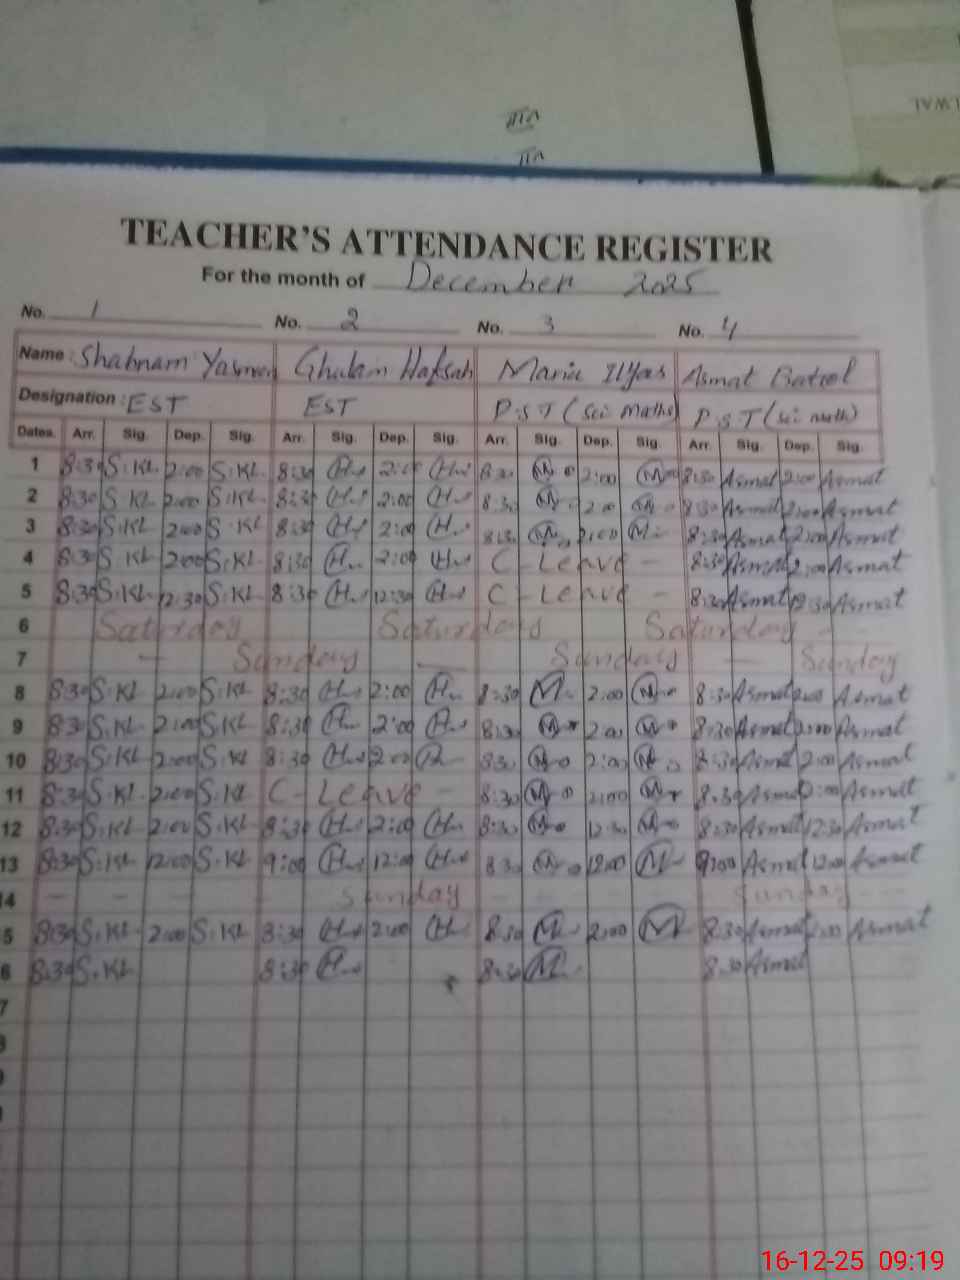 TEACHER'S ATTENDANCE REGISTER
For the month of December 2025
No. 1 No. 2 No. 3 No. 4
Name : Shabnam Yasmen Ghulam Hafsah Maria Ilyas Asmat Batool
Designation : EST EST P.S.T (Sci maths) P.S.T (Sci math)
Dates. Arr. Sig. Dep. Sig. Arr. Sig. Dep. Sig. Arr. Sig. Dep. Sig. Arr. Sig. Dep. Sig.
1 8:30 S.KL 2:00 S.KL 8:30 H 2:00 H 8:30 M 2:00 M 8:30 Asmat 2:00 Asmat
2 8:30 S.KL 2:00 S.KL 8:30 H 2:00 H 8:30 M 2:00 M 8:30 Asmat 2:00 Asmat
3 8:30 S.KL 2:00 S.KL 8:30 H 2:00 H 8:30 M 2:00 M 8:30 Asmat 2:00 Asmat
4 8:30 S.KL 2:00 S.KL 8:30 H 2:00 H C - Leave - 8:30 Asmat 2:00 Asmat
5 8:30 S.KL 12:30 S.KL 8:30 H 12:30 H C - Leave - 8:30 Asmat 12:30 Asmat
6 Saturday Saturday Saturday - -
7 - Sunday - Sunday - Sunday
8 8:30 S.KL 2:00 S.KL 8:30 H 2:00 H 8:30 M 2:00 M 8:30 Asmat 2:00 Asmat
9 8:30 S.KL 2:00 S.KL 8:30 H 2:00 H 8:30 M 2:00 M 8:30 Asmat 2:00 Asmat
10 8:30 S.KL 2:00 S.KL 8:30 H 2:00 H 8:30 M 2:00 M 8:30 Asmat 2:00 Asmat
11 8:30 S.KL 2:00 S.KL C - Leave - 8:30 M 2:00 M 8:30 Asmat 2:00 Asmat
12 8:30 S.KL 2:00 S.KL 8:30 H 2:00 H 8:30 M 12:30 M 8:30 Asmat 12:30 Asmat
13 8:30 S.KL 12:00 S.KL 9:00 H 12:00 H 8:30 M 12:00 M 9:00 Asmat 12:00 Asmat
14 - - - - - Sunday - - - - Sunday - -
5 8:30 S.KL 2:00 S.KL 8:30 H 2:00 H 8:30 M 2:00 M 8:30 Asmat 2:00 Asmat
6 8:30 S.KL 8:30 H 8:30 M 8:30 Asmat
7
16-12-25 09:19